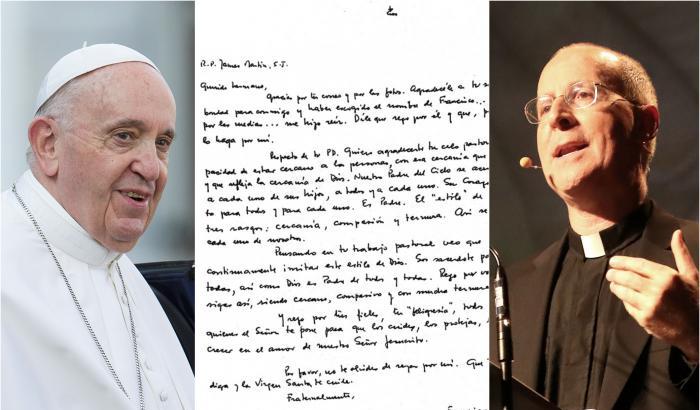 R.P. James Martin, S.J.
Querido hermano,
Gracias por tu correo y por las fotos. Agradécele a tu s
bondad para conmigo y haber escogido el nombre de Francisco...
por las medias... me hizo reír. Dile que rezo por él y que, p
lo haga por mí.
Respecto de tu PD. Quiero agradecerte tu celo pastor
pacidad de estar cercano a las personas, con esa cercanía que
y que refleja la cercanía de Dios. Nuestro Padre del Cielo se acer
a cada uno de sus hijos, a todos y a cada uno. Su Corazó
to para todos y para cada uno. Es Padre. El "estilo" de
tres rasgos: cercanía, compasión y ternura. Así se
cada uno de nosotros.
Pensando en tu trabajo pastoral veo que
continuamente imitar este estilo de Dios. Sos sacerdote pa
todas, así como Dios es Padre de todos y todas. Rezo por vo
sigas así, siendo cercano, compasivo y con mucha ternura
Y rezo por tus fieles, tu "feligresía", todos
quienes el Señor te pone para que los cuides, los protejas,
crecer en el amor de nuestro Señor Jesucristo.
Por favor, no te olvides de rezar por mí. Que
diga y la Virgen Santa te cuide.
Fraternalmente,